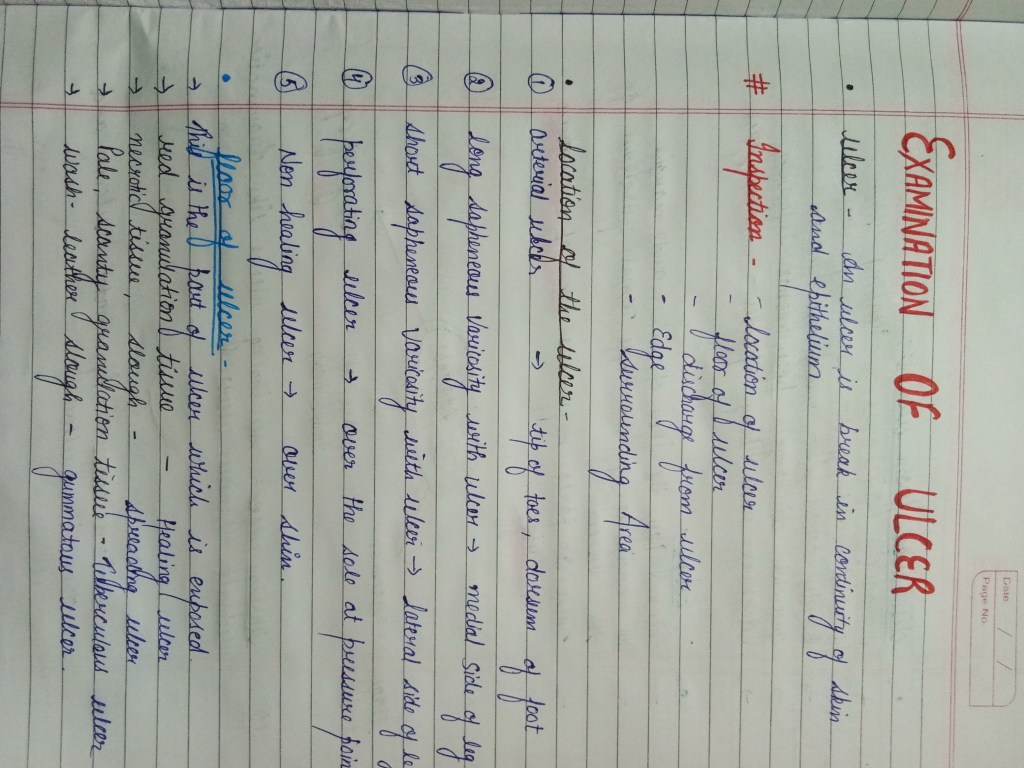 Date / /
Page No.
EXAMINATION OF ULCER
• Ulcer - An ulcer is break in continuity of skin
and epithelium
# Inspection - - Location of ulcer
- floor of ulcer
- discharge from ulcer
- Edge
- surrounding Area
• Location of the ulcer -
① arterial ulcer → tip of toes, dorsum of foot
② long saphenous varicosity with ulcer → medal side of leg
③ short saphneous varicosity with ulcer → lateral side of le
④ perforating ulcer → over the sole at pressure poin
⑤ Non healing ulcer → over shin.
• floor of ulcer -
→ This is the part of ulcer which is exposed.
→ red granulation tissue - Healing ulcer
→ necrotic tissue, slough - spreading ulcer
→ Pale, scanty granulation tissue - Tuberculous ulcer
→ wash-leather slough - gummatous ulcer.